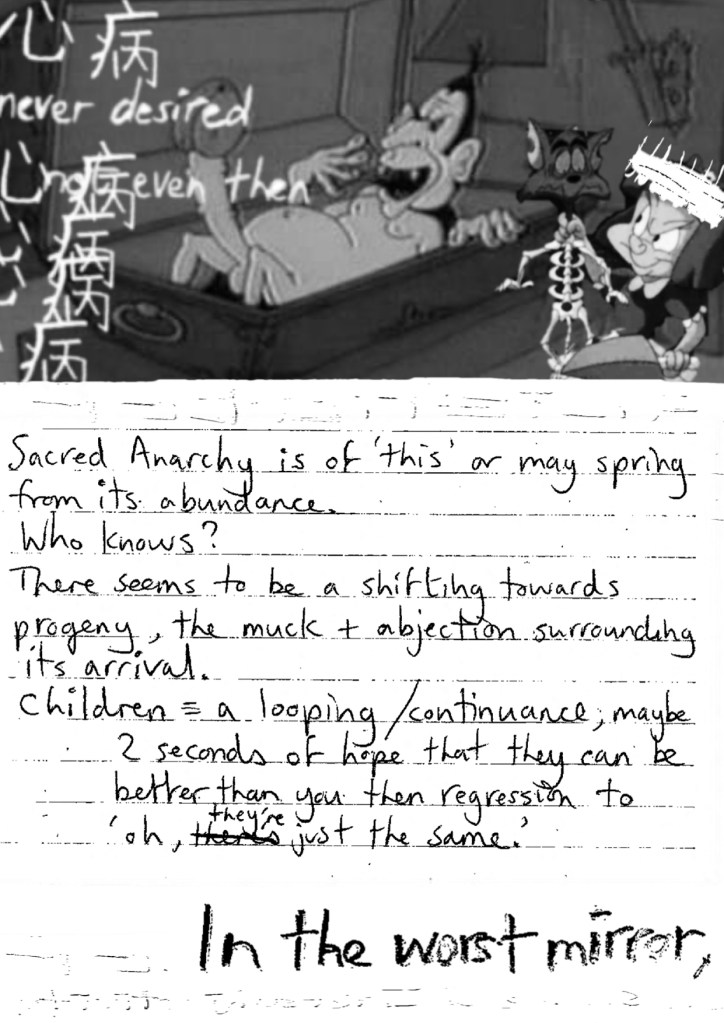 心病
never desired
心病
not even then
病
病
病
Sacred Anarchy is of 'this' or may spring
from its abundance.
Who knows?
There seems to be a shifting towards
progeny, the muck + abjection surrounding
its arrival.
Children = a looping/continuance; maybe
2 seconds of hope that they can be
better than you then regression to
'oh, they're just the same.'
In the worst mirror,